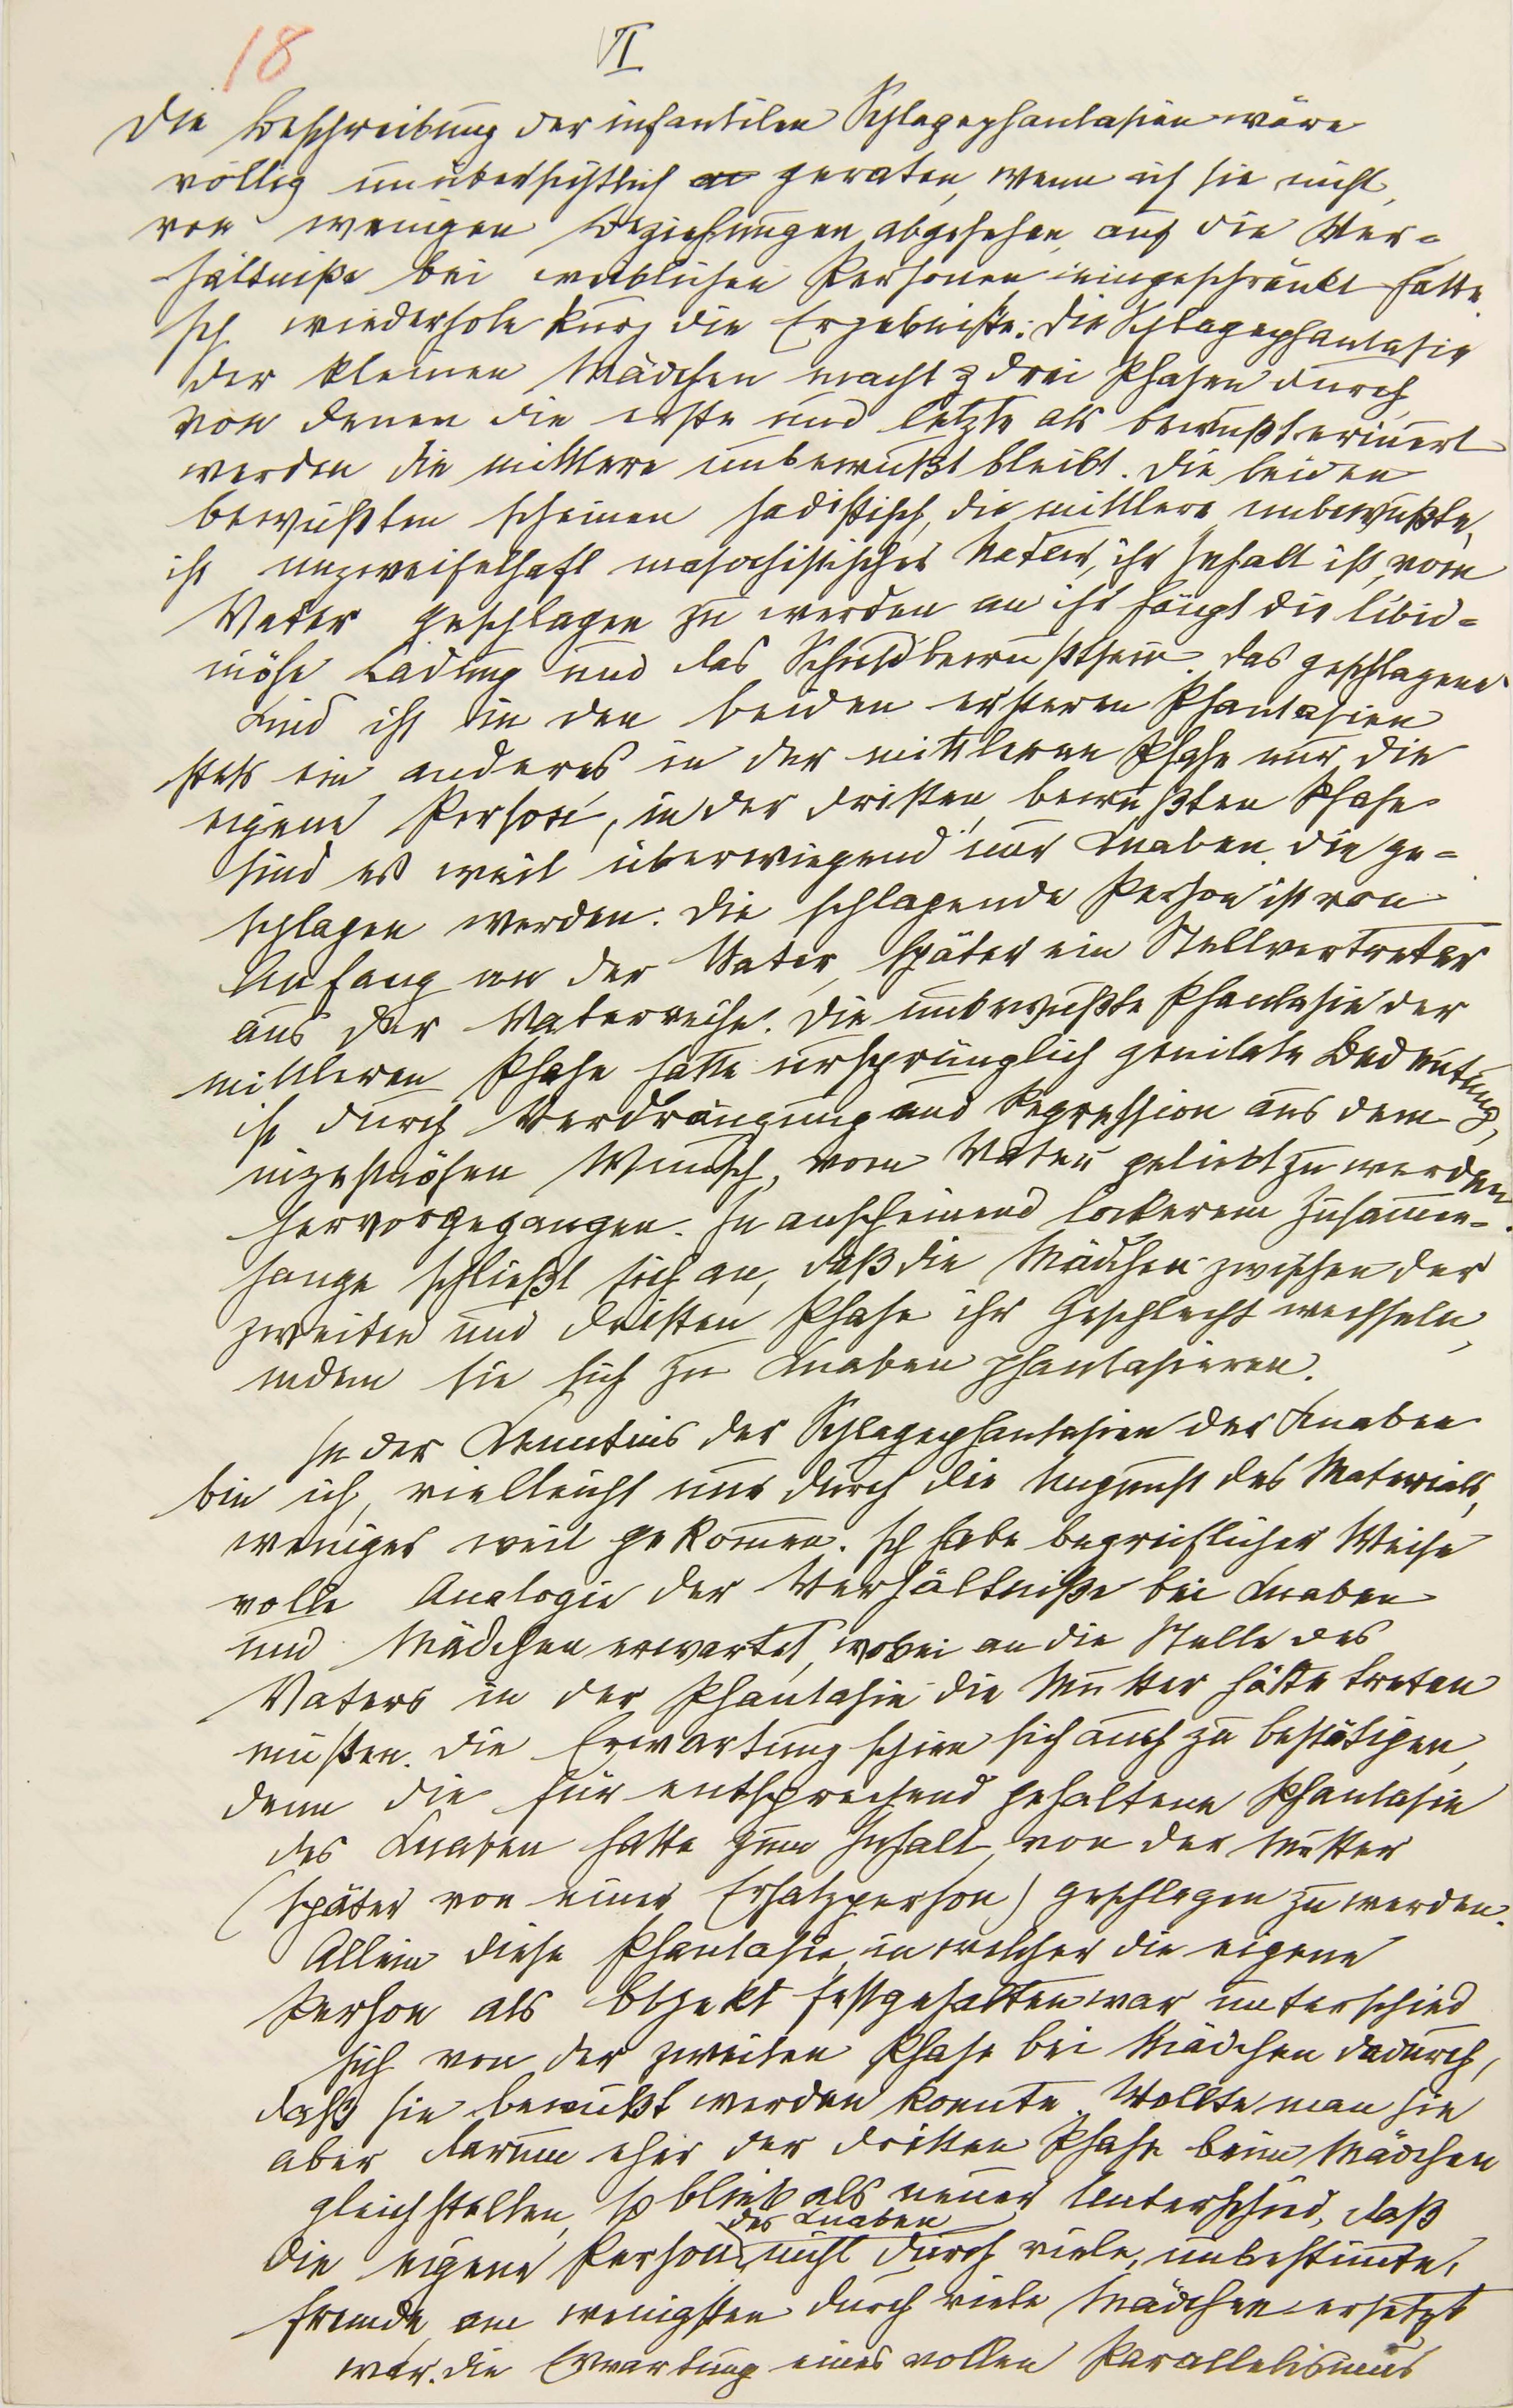 18
VI
Die Beschreibung der infantilen Schlagephantasien wäre
völlig unübersichtlich geraten, wenn ich sie nicht,
von wenigen Beziehungen abgesehen, auf die Ver-
hältniße bei weiblichen Personen eingeschränkt hätte.
Ich wiederhole kurz die Ergebniße: Die Schlagephantasie
der kleinen Mädchen macht drei Phasen durch,
von denen die erste und letzte als bewußt erinnert
werden die mittlere unbewußt bleibt. Die beiden
bewußten scheinen sadistisch, die mittlere unbewußte,
ist unzweifelhaft masochistischer Natur, ihr Inhalt ist, vom
Vater geschlagen zu werden an ihr hängt die libid-
inöse Ladung und das Schuldbewußtsein. Das geschlagene
Kind ist in den beiden ersteren Phantasien
stets ein anderes in der mittleren Phase nur die
eigene Person, in der dritten, bewußten Phase
sind es weit überwiegend nur Knaben die ge-
schlagen werden. Die schlagende Person ist von
Anfang an der Vater, später ein Stellvertreter
aus der Vaterreihe. Die unbewußte Phantasie der
mittleren Phase hatte ursprünglich genitale Bedeutung,
ist durch Verdrängung und Regression aus dem
inzestuösen Wunsch, vom Vater geliebt zu werden
hervorgegangen. In anscheinend lockerem Zusammen-
hange schließt sich an, daß die Mädchen zwischen der
zweiten und dritten Phase ihr Geschlecht wechseln,
indem sie sich zu Knaben phantasieren.
In der Kenntnis der Schlagephantasien der Knaben
bin ich, vielleicht nur durch die Ungunst des Materials,
weniger weit gekommen. Ich habe begreiflicher Weise
volle Analogie der Verhältniße bei Knaben
und Mädchen erwartet, wobei an die Stelle des
Vaters in der Phantasie die Mutter hätte treten
müßen. Die Erwartung schien sich auch zu bestätigen,
denn die für entsprechend gehaltene Phantasie
des Knaben hatte zum Inhalt von der Mutter
(später von einer Ersatzperson) geschlagen zu werden.
Allein diese Phantasie, in welcher die eigene
Person als Objekt festgehalten war unterschied
sich von der zweiten Phase bei Mädchen dadurch,
daß sie bewußt werden konnte. Wollte man sie
aber darum eher der dritten Phase beim Mädchen
gleichstellen, so blieb als neuer Unterschied, daß
die eigene Person des Knaben nicht durch viele, unbestimmte,
fremde, am wenigsten durch viele Mädchen ersetzt
war. Die Erwartung eines vollen Parallelismus